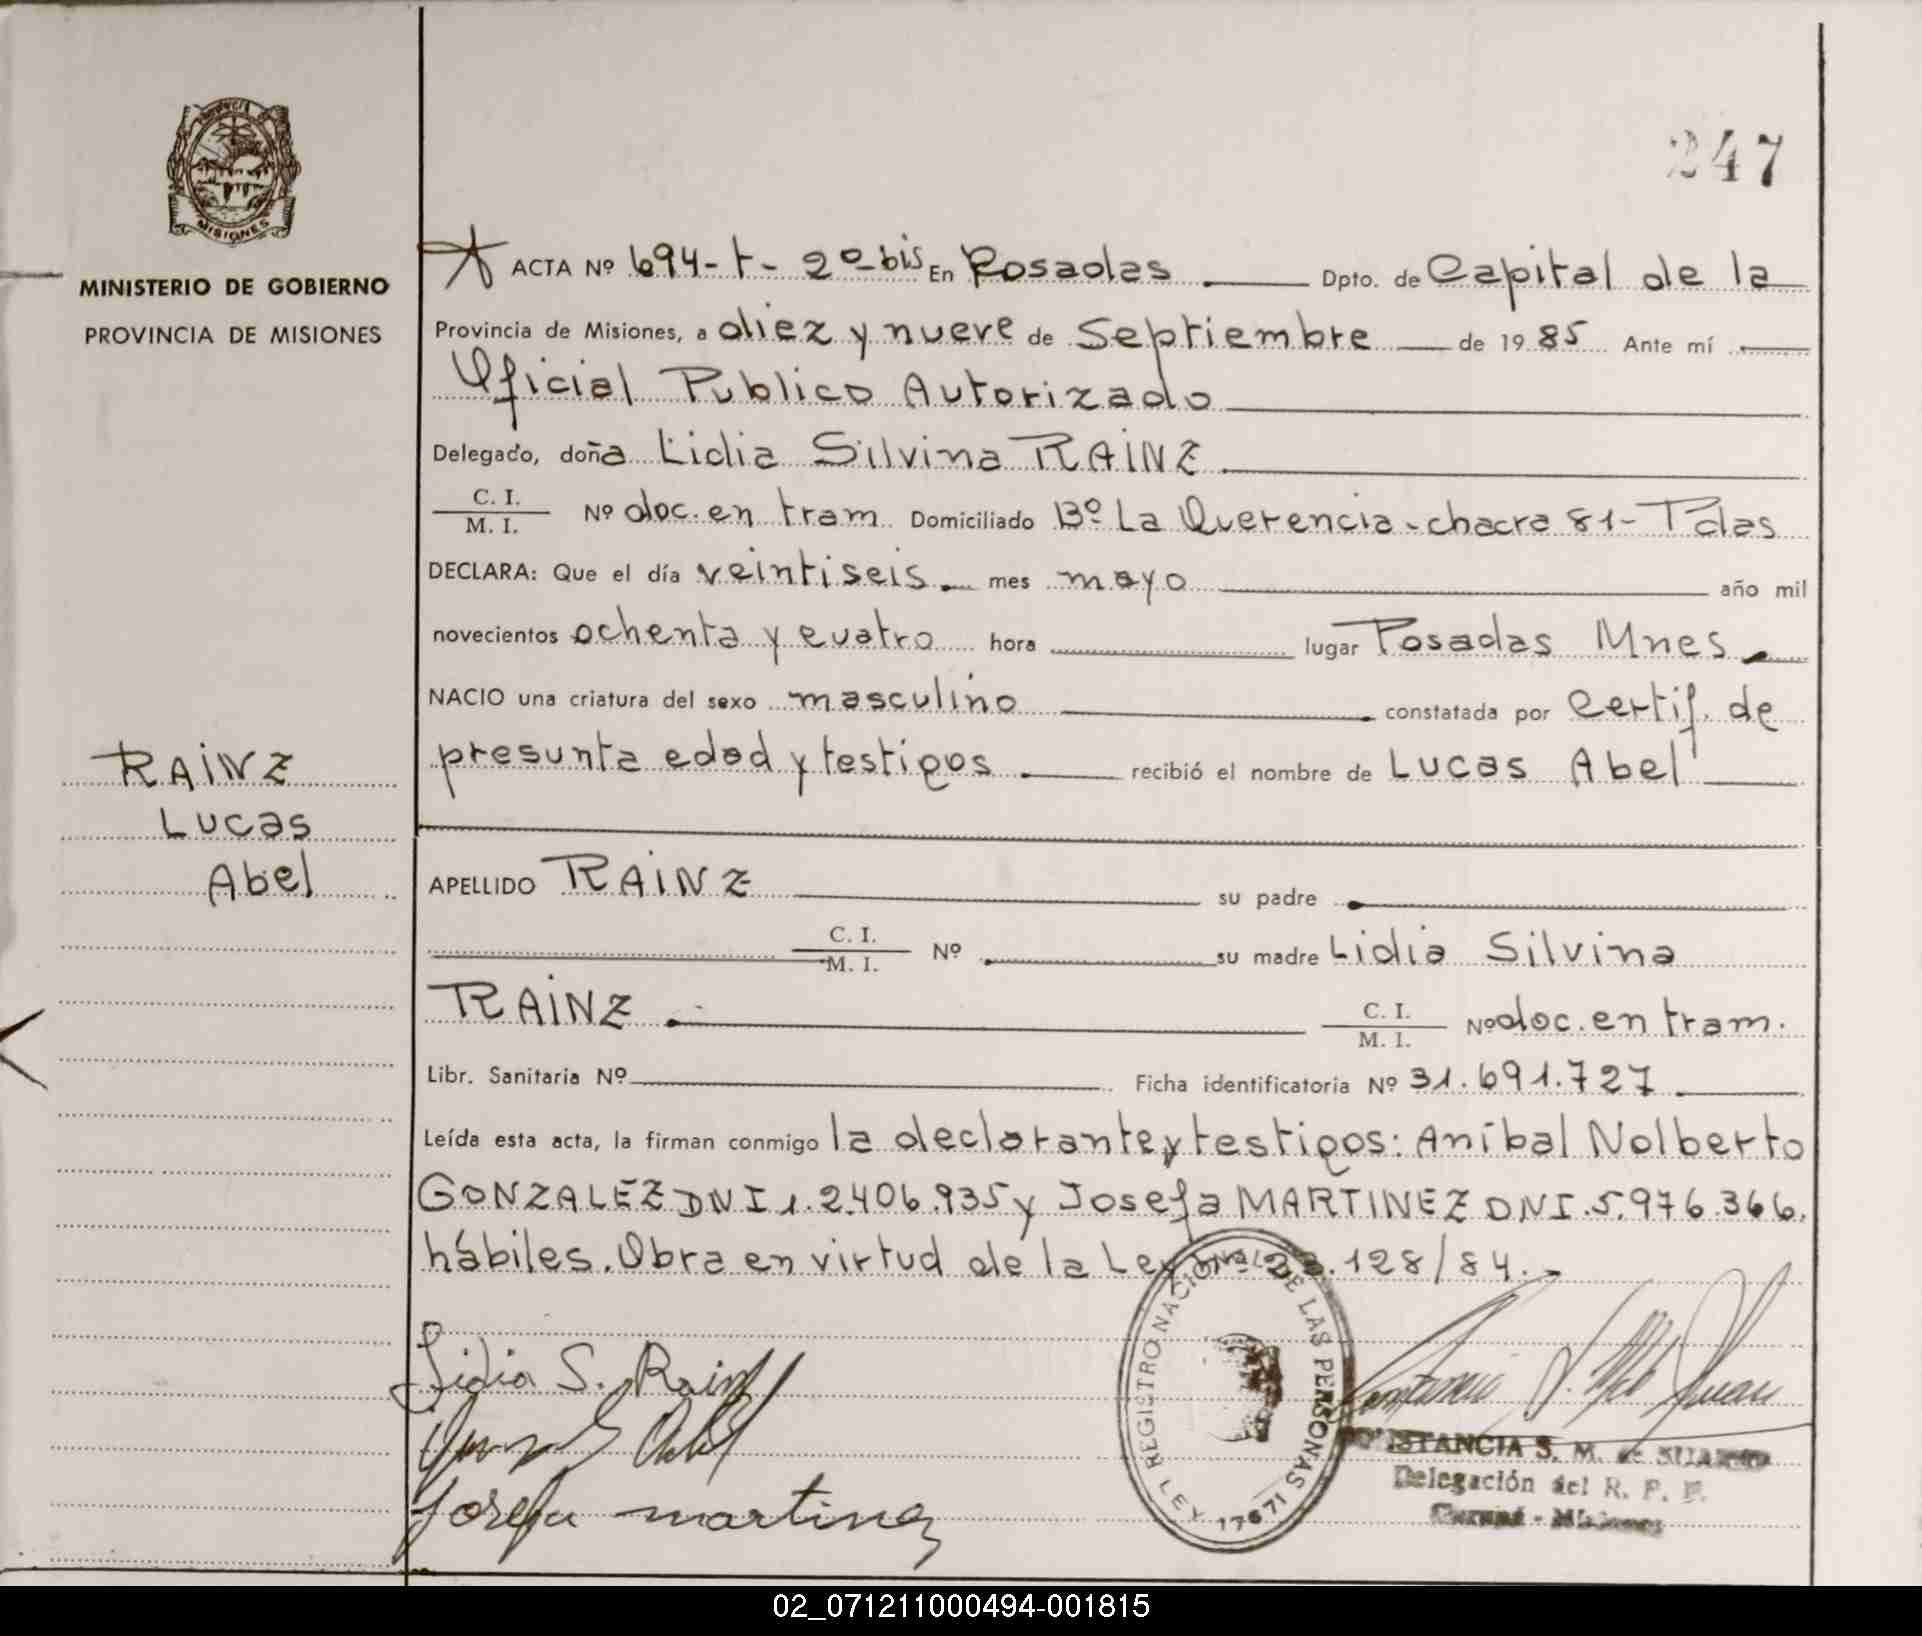 PROVINCIA
MISIONES
MINISTERIO DE GOBIERNO
PROVINCIA DE MISIONES
RAINZ
Lucas
Abel
247
ACTA Nº 694-t-2º bis En Posadas Dpto. de Capital de la
Provincia de Misiones, a diez y nueve de Septiembre de 1985 Ante mí
Oficial Publico Autorizado
Delegado, doña Lidia Silvina RAINZ
C. I.
M. I. Nº doc. en tram. Domiciliado Bº La Querencia-chacra 81-Pdas
DECLARA: Que el día veintiseis mes mayo año mil
novecientos ochenta y cuatro hora lugar Posadas Mnes
NACIO una criatura del sexo masculino constatada por Certif. de
presunta edad y testigos recibió el nombre de Lucas Abel
APELLIDO RAINZ su padre
C. I.
M. I. Nº su madre Lidia Silvina
RAINZ C. I.
M. I. Nº doc. en tram.
Libr. Sanitaria Nº Ficha identificatoria Nº 31.691.727
Leída esta acta, la firman conmigo la declarante y testigos: Aníbal Nolberto
GONZALEZ DNI 12.406.935 y Josefa MARTINEZ DNI. 5.976.366.
hábiles. Obra en virtud de la Ley nº 23.128/84.-
Lidia S. Rainz
Josefa martinez
REGISTRO NACIONAL DE LAS PERSONAS
LEY 17671
CONSTANCIA S. M. de SUAREZ
Delegación del R. P. P.
02_071211000494-001815